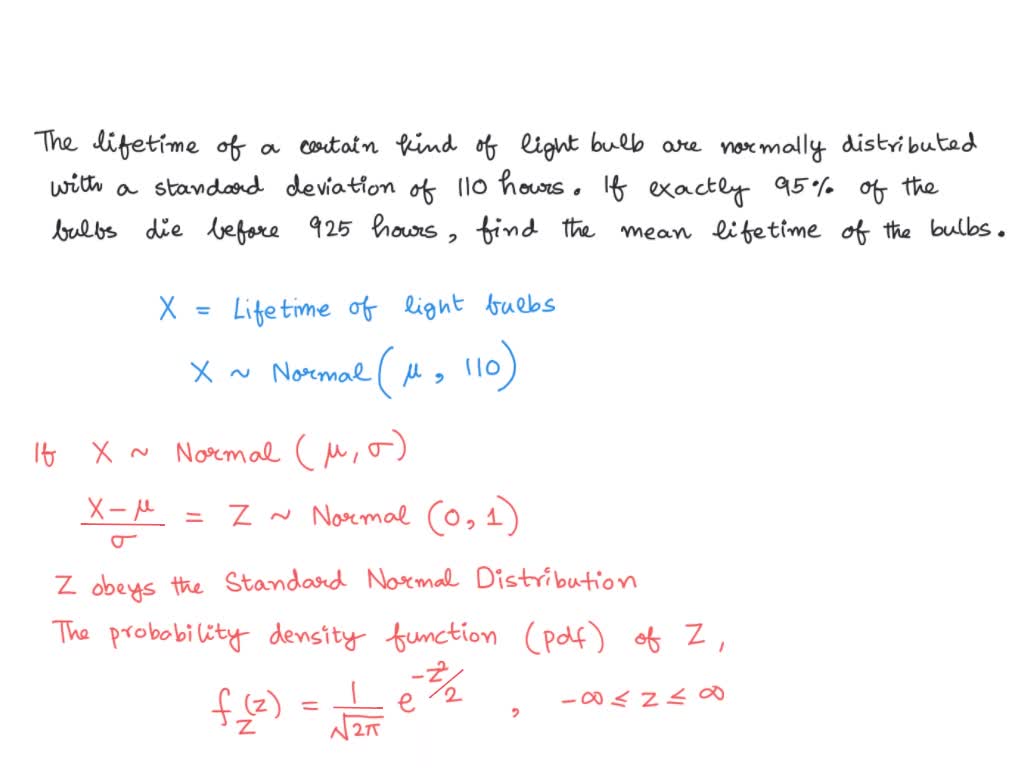 The lifetime of a certain kind of light bulb are normally distributed
with a standard deviation of 110 hours. If exactly 95% of the
bulbs die before 925 hours, find the mean lifetime of the bulbs.
X = Lifetime of light bulbs
X ~ Normal (μ, 110)
If X ~ Normal (μ, σ)
X-μ/σ = Z ~ Normal (0, 1)
Z obeys the Standard Normal Distribution
The probability density function (pdf) of Z,
f_Z(z) = 1/√2π e^-z²/2 , -∞ ≤ z ≤ ∞